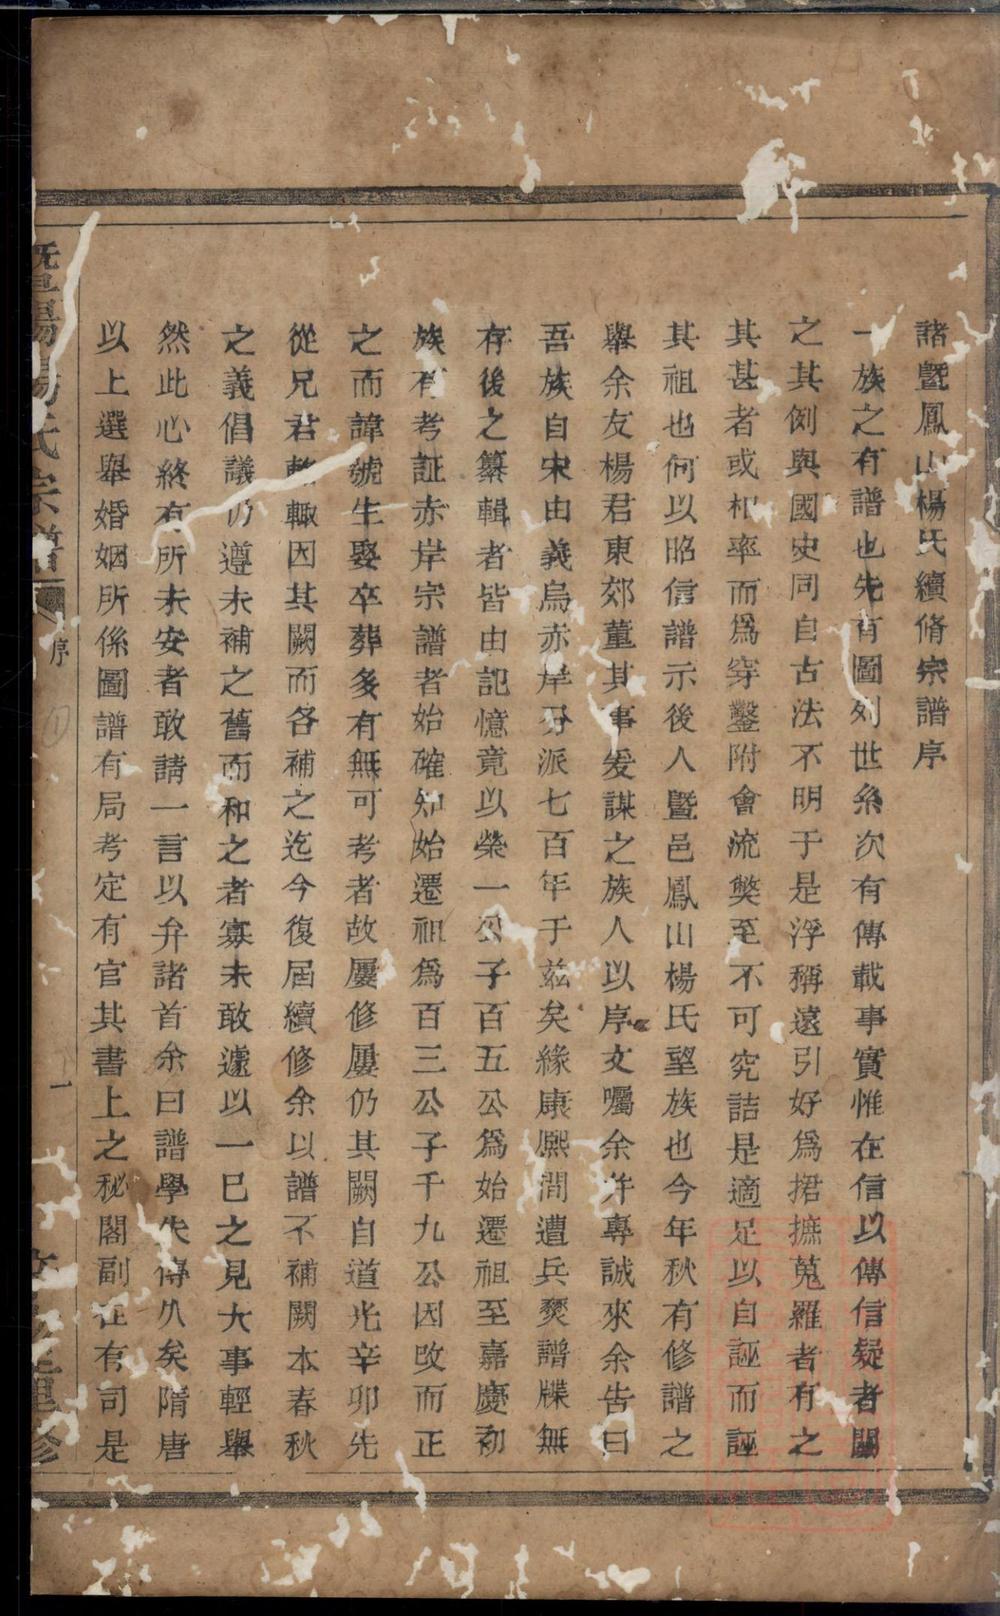 諸暨鳳山楊氏續脩宗譜序
一族之有譜也先有圖列世系次有傳載事實惟在信以傳信疑者闕
之其例與國史同自古法不明于是浮稱遠引好爲捃摭蒐羅者有之
其甚者或相率而爲穿鑿附會流獘至不可究詰是適足以自誣而誣
其祖也何以昭信譜示後人暨邑鳳山楊氏望族也今年秋有修譜之
舉余友楊君東郊董其事爰謀之族人以序文囑余并專誠來余告曰
吾族自宋由義烏赤岸分派七百年于兹矣緣康熈間遭兵燹譜牒無
存後之纂輯者皆由記憶竟以榮一公子百五公爲始遷祖至嘉慶初
族有考証赤岸宗譜者始確知始遷祖爲百三公子千九公因改而正
之而諱號生娶卒葬多有無可考者故屢修屢仍其闕自道光辛卯先
從兄君 輙因其闕而各補之迄今復屆續修余以譜不補闕本春秋
之義倡議仍遵未補之舊而和之者寡未敢遽以一巳之見大事輕舉
然此心終有所未安者敢請一言以弁諸首余曰譜學失傳久矣隋唐
以上選舉婚姻所係圖譜有局考定有官其書上之秘閣副在有司是
暨陽楊氏宗譜 序 一